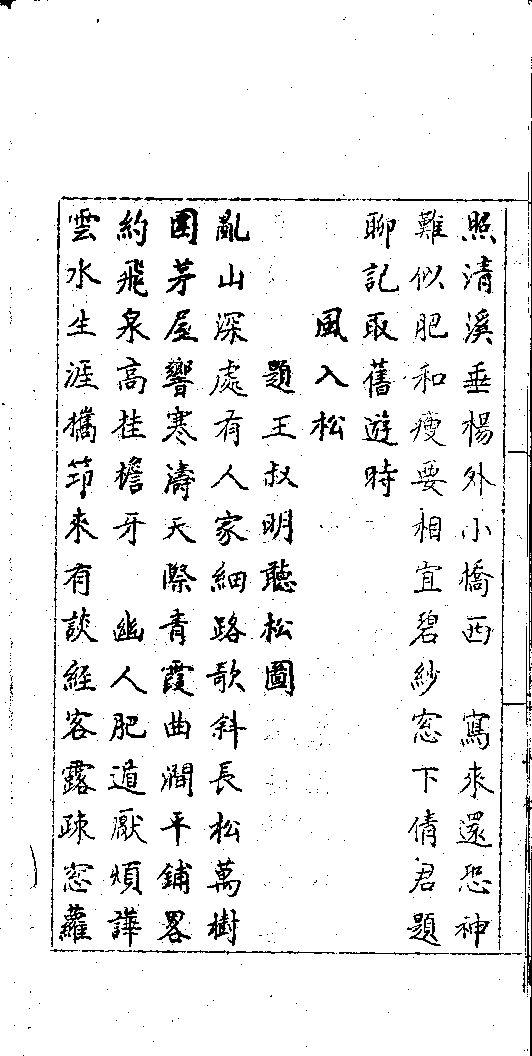 照清溪垂楊外小橋西　寫來還恐神
難似肥和瘦要相宜碧紗窓下倩君題
聊記取舊遊時
風入松
題王叔明聽松圖
亂山深處有人家細路欹斜長松萬樹
圍茅屋響寒濤天際青霞曲澗平鋪畧
約飛泉高挂檐牙　幽人肥遁厭煩譁
雲水生涯攜笻來有談經客露疎窓蘿